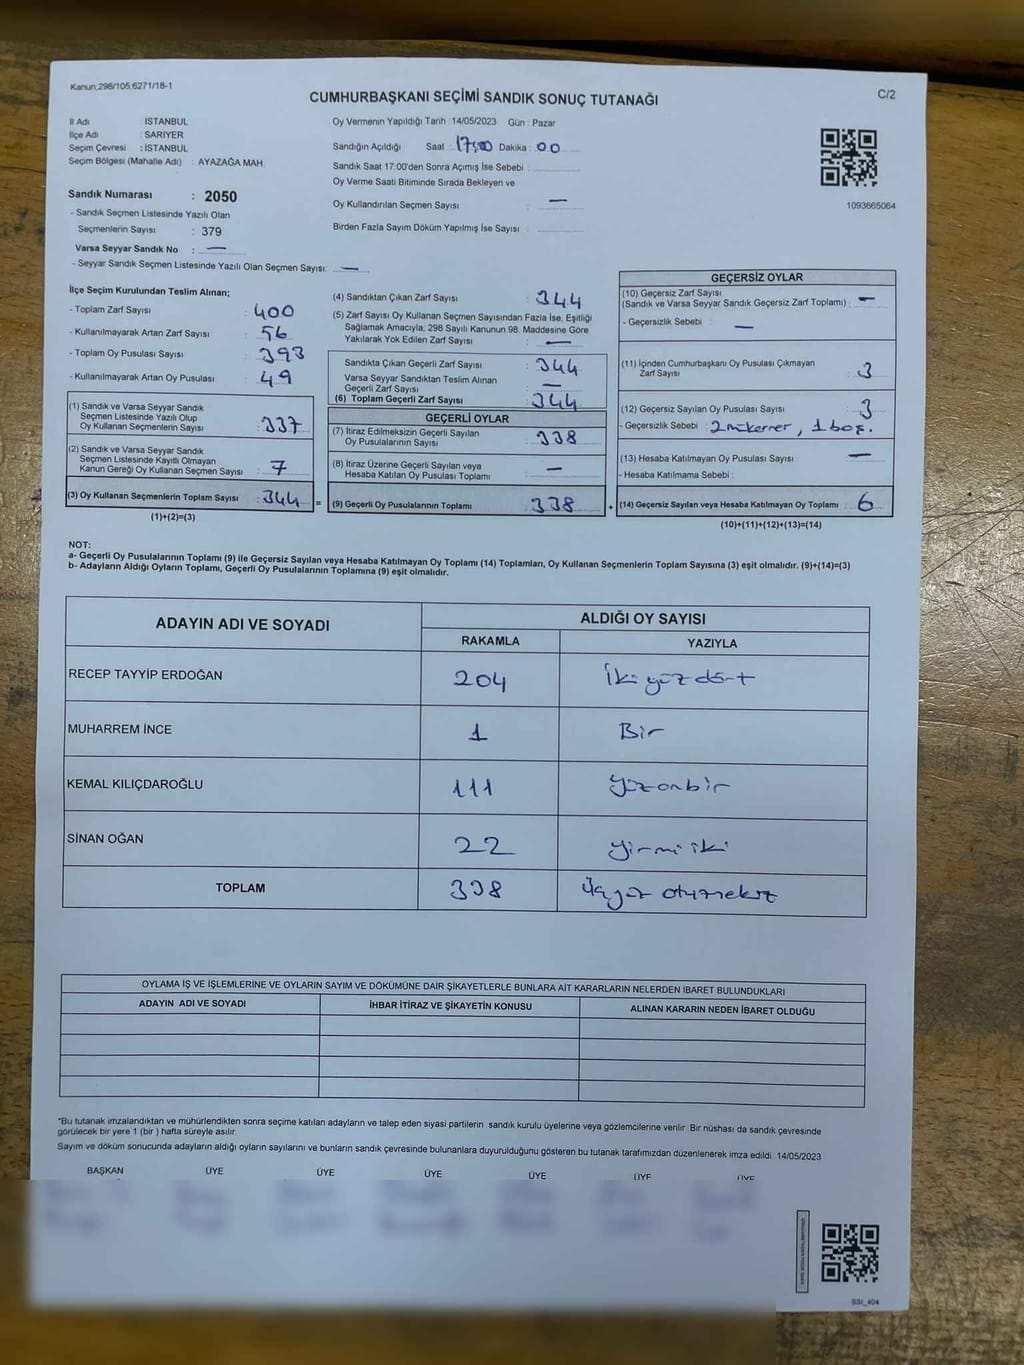 Kanun,298/105,6271/18-1
CUMHURBAŞKANI SEÇİMİ SANDIK SONUÇ TUTANAĞI
C/2
İl Adı İSTANBUL
İlçe Adı : SARIYER
Seçim Çevresi : İSTANBUL
Seçim Bölgesi (Mahalle Adı) : AYAZAĞA MAH.
Sandık Numarası : 2050
- Sandık Seçmen Listesinde Yazılı Olan
Seçmenlerin Sayısı : 379
Varsa Seyyar Sandık No : —
- Seyyar Sandık Seçmen Listesinde Yazılı Olan Seçmen Sayısı: —
Oy Vermenin Yapıldığı Tarih :14/05/2023 Gün : Pazar
Sandığın Açıldığı Saat : 17:00 Dakika : 00
Sandık Saat 17:00'den Sonra Açımış İse Sebebi :
Oy Verme Saati Bitiminde Sırada Bekleyen ve
Oy Kullandırılan Seçmen Sayısı : —
Birden Fazla Sayım Döküm Yapılmış İse Sayısı :
1093665064
İlçe Seçim Kurulundan Teslim Alınan;
- Toplam Zarf Sayısı : 400
- Kullanılmayarak Artan Zarf Sayısı : 56
- Toplam Oy Pusulası Sayısı : 393
- Kullanılmayarak Artan Oy Pusulası : 49
(1) Sandık ve Varsa Seyyar Sandık
Seçmen Listesinde Yazılı Olup
Oy Kullanan Seçmenlerin Sayısı : 337
(2) Sandık ve Varsa Seyyar Sandık
Seçmen Listesinde Kayıtlı Olmayan
Kanun Gereği Oy Kullanan Seçmen Sayısı : 7
(3) Oy Kullanan Seçmenlerin Toplam Sayısı : 344 =
(1)+(2)=(3)
(4) Sandıktan Çıkan Zarf Sayısı : 344
(5) Zarf Sayısı Oy Kullanan Seçmen Sayısından Fazla İse, Eşitliği
Sağlamak Amacıyla, 298 Sayılı Kanunun 98. Maddesine Göre
Yakılarak Yok Edilen Zarf Sayısı : —
Sandıkta Çıkan Geçerli Zarf Sayısı : 344
Varsa Seyyar Sandıktan Teslim Alınan
Geçerli Zarf Sayısı : —
(6) Toplam Geçerli Zarf Sayısı : 344
GEÇERLİ OYLAR
(7) İtiraz Edilmeksizin Geçerli Sayılan
Oy Pusulalarının Sayısı : 338
(8) İtiraz Üzerine Geçerli Sayılan veya
Hesaba Katılan Oy Pusulası Toplamı : —
(9) Geçerli Oy Pusulalarının Toplamı : 338 +
GEÇERSİZ OYLAR
(10) Geçersiz Zarf Sayısı
(Sandık ve Varsa Seyyar Sandık Geçersiz Zarf Toplamı) : —
- Geçersizlik Sebebi : —
(11) İçinden Cumhurbaşkanı Oy Pusulası Çıkmayan
Zarf Sayısı : 3
(12) Geçersiz Sayılan Oy Pusulası Sayısı : 3
- Geçersizlik Sebebi : 2 mükerrer, 1 boş.
(13) Hesaba Katılmayan Oy Pusulası Sayısı : —
- Hesaba Katılmama Sebebi :
(14) Geçersiz Sayılan veya Hesaba Katılmayan Oy Toplamı : 6
(10)+(11)+(12)+(13)=(14)
NOT:
a- Geçerli Oy Pusulalarının Toplamı (9) ile Geçersiz Sayılan veya Hesaba Katılmayan Oy Toplamı (14) Toplamları, Oy Kullanan Seçmenlerin Toplam Sayısına (3) eşit olmalıdır. (9)+(14)=(3)
b- Adayların Aldığı Oyların Toplamı, Geçerli Oy Pusulalarının Toplamına (9) eşit olmalıdır.
ADAYIN ADI VE SOYADI ALDIĞI OY SAYISI
RAKAMLA YAZIYLA
RECEP TAYYİP ERDOĞAN 204 İki yüz dört
MUHARREM İNCE 1 Bir
KEMAL KILIÇDAROĞLU 111 yüzonbir
SİNAN OĞAN 22 yirmi iki
TOPLAM 338 Üçyüz otuzsekiz
OYLAMA İŞ VE İŞLEMLERİNE VE OYLARIN SAYIM VE DÖKÜMÜNE DAİR ŞİKAYETLERLE BUNLARA AİT KARARLARIN NELERDEN İBARET BULUNDUKLARI
ADAYIN ADI VE SOYADI İHBAR İTİRAZ VE ŞİKAYETİN KONUSU ALINAN KARARIN NEDEN İBARET OLDUĞU
*Bu tutanak imzalandıktan ve mühürlendikten sonra seçime katılan adayların ve talep eden siyasi partilerin sandık kurulu üyelerine veya gözlemcilerine verilir. Bir nüshası da sandık çevresinde
görülecek bir yere 1 (bir ) hafta süreyle asılır.
Sayım ve döküm sonucunda adayların aldığı oyların sayılarını ve bunların sandık çevresinde bulunanlara duyurulduğunu gösteren bu tutanak tarafımızdan düzenlenerek imza edildi. 14/05/2023
BAŞKAN ÜYE ÜYE ÜYE ÜYE ÜYE ÜYE
SSI_404